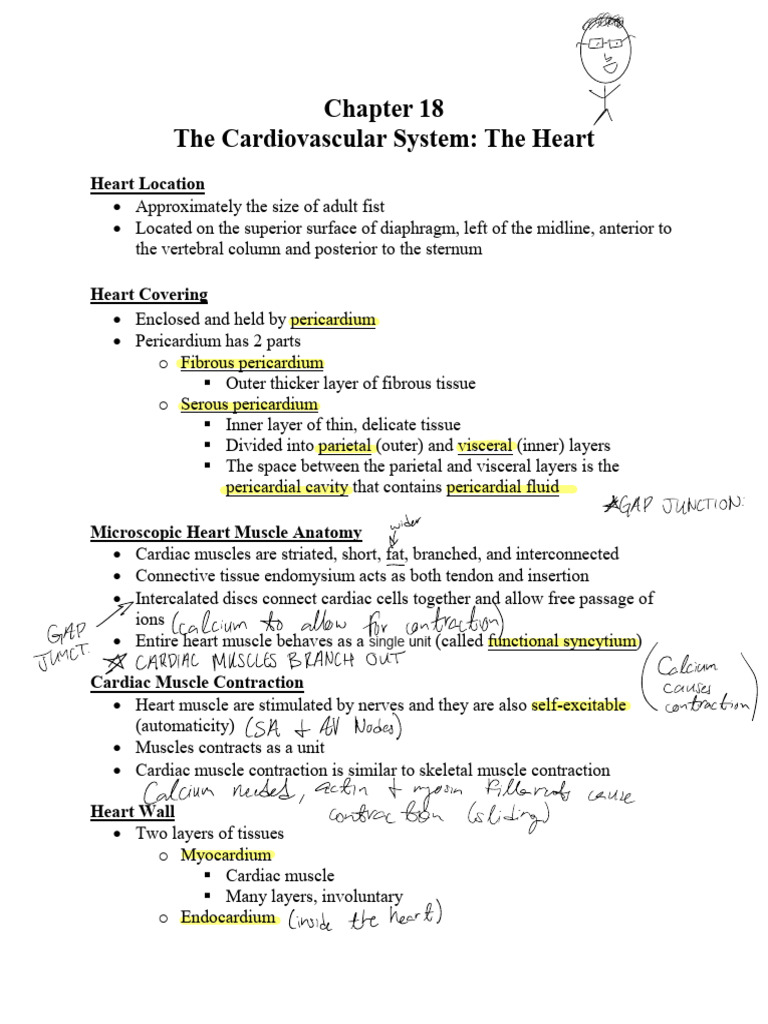 Chapter 18
The Cardiovascular System: The Heart
Heart Location
• Approximately the size of adult fist
• Located on the superior surface of diaphragm, left of the midline, anterior to
the vertebral column and posterior to the sternum
Heart Covering
• Enclosed and held by pericardium
• Pericardium has 2 parts
o Fibrous pericardium
▪ Outer thicker layer of fibrous tissue
o Serous pericardium
▪ Inner layer of thin, delicate tissue
▪ Divided into parietal (outer) and visceral (inner) layers
▪ The space between the parietal and visceral layers is the
pericardial cavity that contains pericardial fluid
GAP JUNCTION:
wider
Microscopic Heart Muscle Anatomy
• Cardiac muscles are striated, short, fat, branched, and interconnected
• Connective tissue endomysium acts as both tendon and insertion
• Intercalated discs connect cardiac cells together and allow free passage of
ions (calcium to allow for contraction)
GAP
JUNCT.
• Entire heart muscle behaves as a single unit (called functional syncytium)
CARDIAC MUSCLES BRANCH OUT
(Calcium
causes
contraction)
Cardiac Muscle Contraction
• Heart muscle are stimulated by nerves and they are also self-excitable
(automaticity) (SA + AV Nodes)
• Muscles contracts as a unit
• Cardiac muscle contraction is similar to skeletal muscle contraction
Calcium needed, actin + myosin fillaments cause
contraction (sliding)
Heart Wall
• Two layers of tissues
o Myocardium
▪ Cardiac muscle
▪ Many layers, involuntary
o Endocardium (inside the heart)